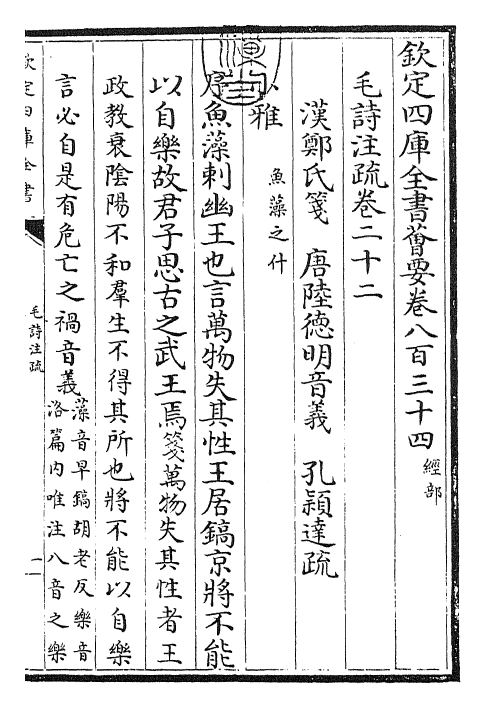 欽定四庫全書薈要卷八百三十四 經部
毛詩注疏卷二十二
漢鄭氏箋 唐陸德明音義 孔穎達疏
小雅 魚藻之什
序魚藻刺幽王也言萬物失其性王居鎬京將不能
以自樂故君子思古之武王焉箋萬物失其性者王
政教衰陰陽不和羣生不得其所也將不能以自樂
言必自是有危亡之禍音義
藻音早鎬胡老反樂音
洛篇内唯注八音之樂
欽定四庫全書
毛詩注疏
一